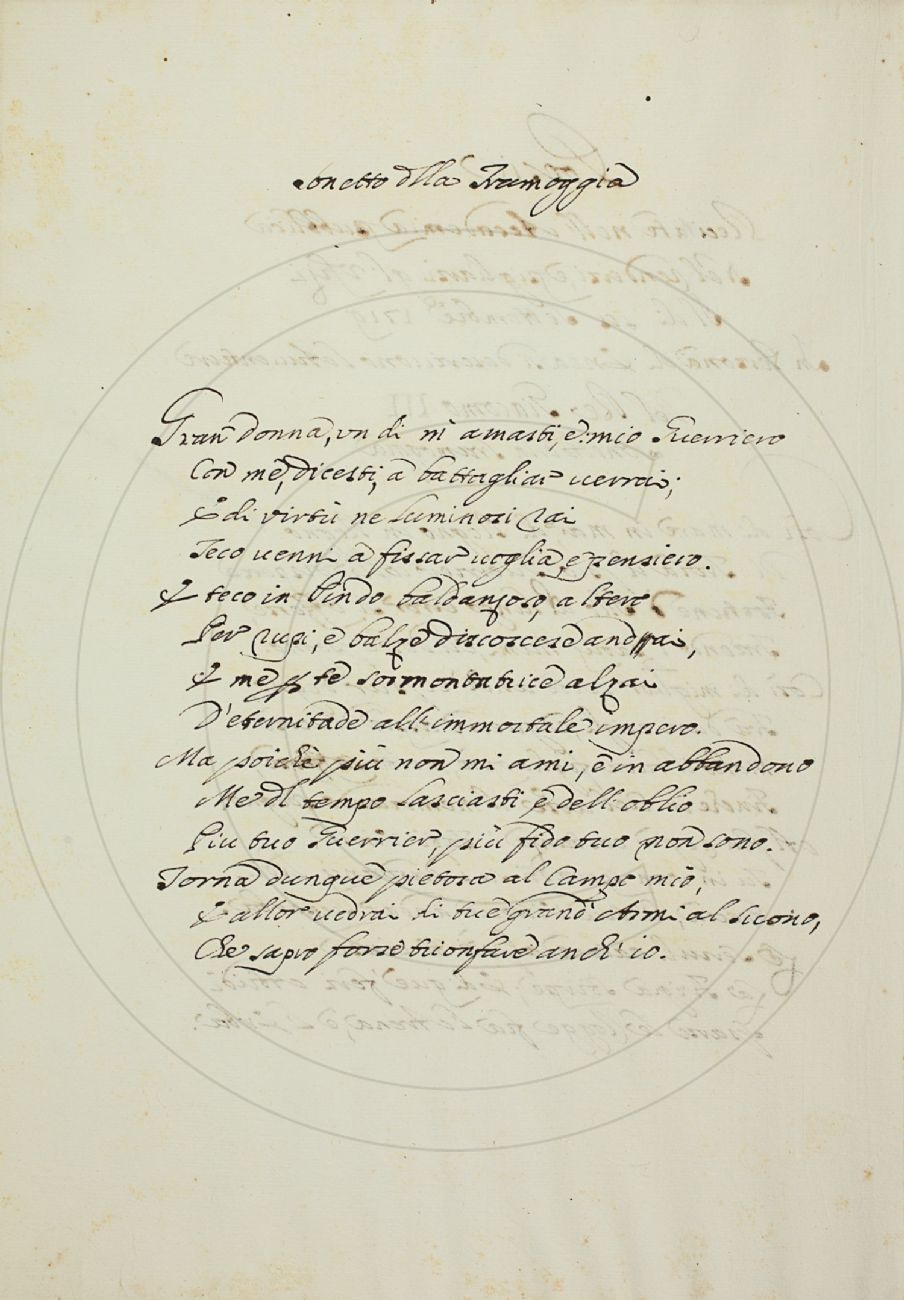 Sonetto della Tramoggia
Gran donna, un di m'amasti, e mio Guerriero
Con me, dicesti, a battagliar verrai;
E di virtù ne luminosi rai
Teco venni a fissar voglia, e pensiero.
E teco in Pindo baldanzoso, altero
Per rupi, e balze discoscese andai,
E me per te sormontatrice alzai
D'eternitade all'immortale impero.
Ma poichè più non mi ami, e in abbandono
Me del tempo lasciasti e dell'oblio
Piu tuo Guerrier, più fido tuo non sono.
Torna dunque pietosa al Campo mio,
E allor vedrai di tue grand'Armi al suono,
Che saprò forse trionfare anch'io.